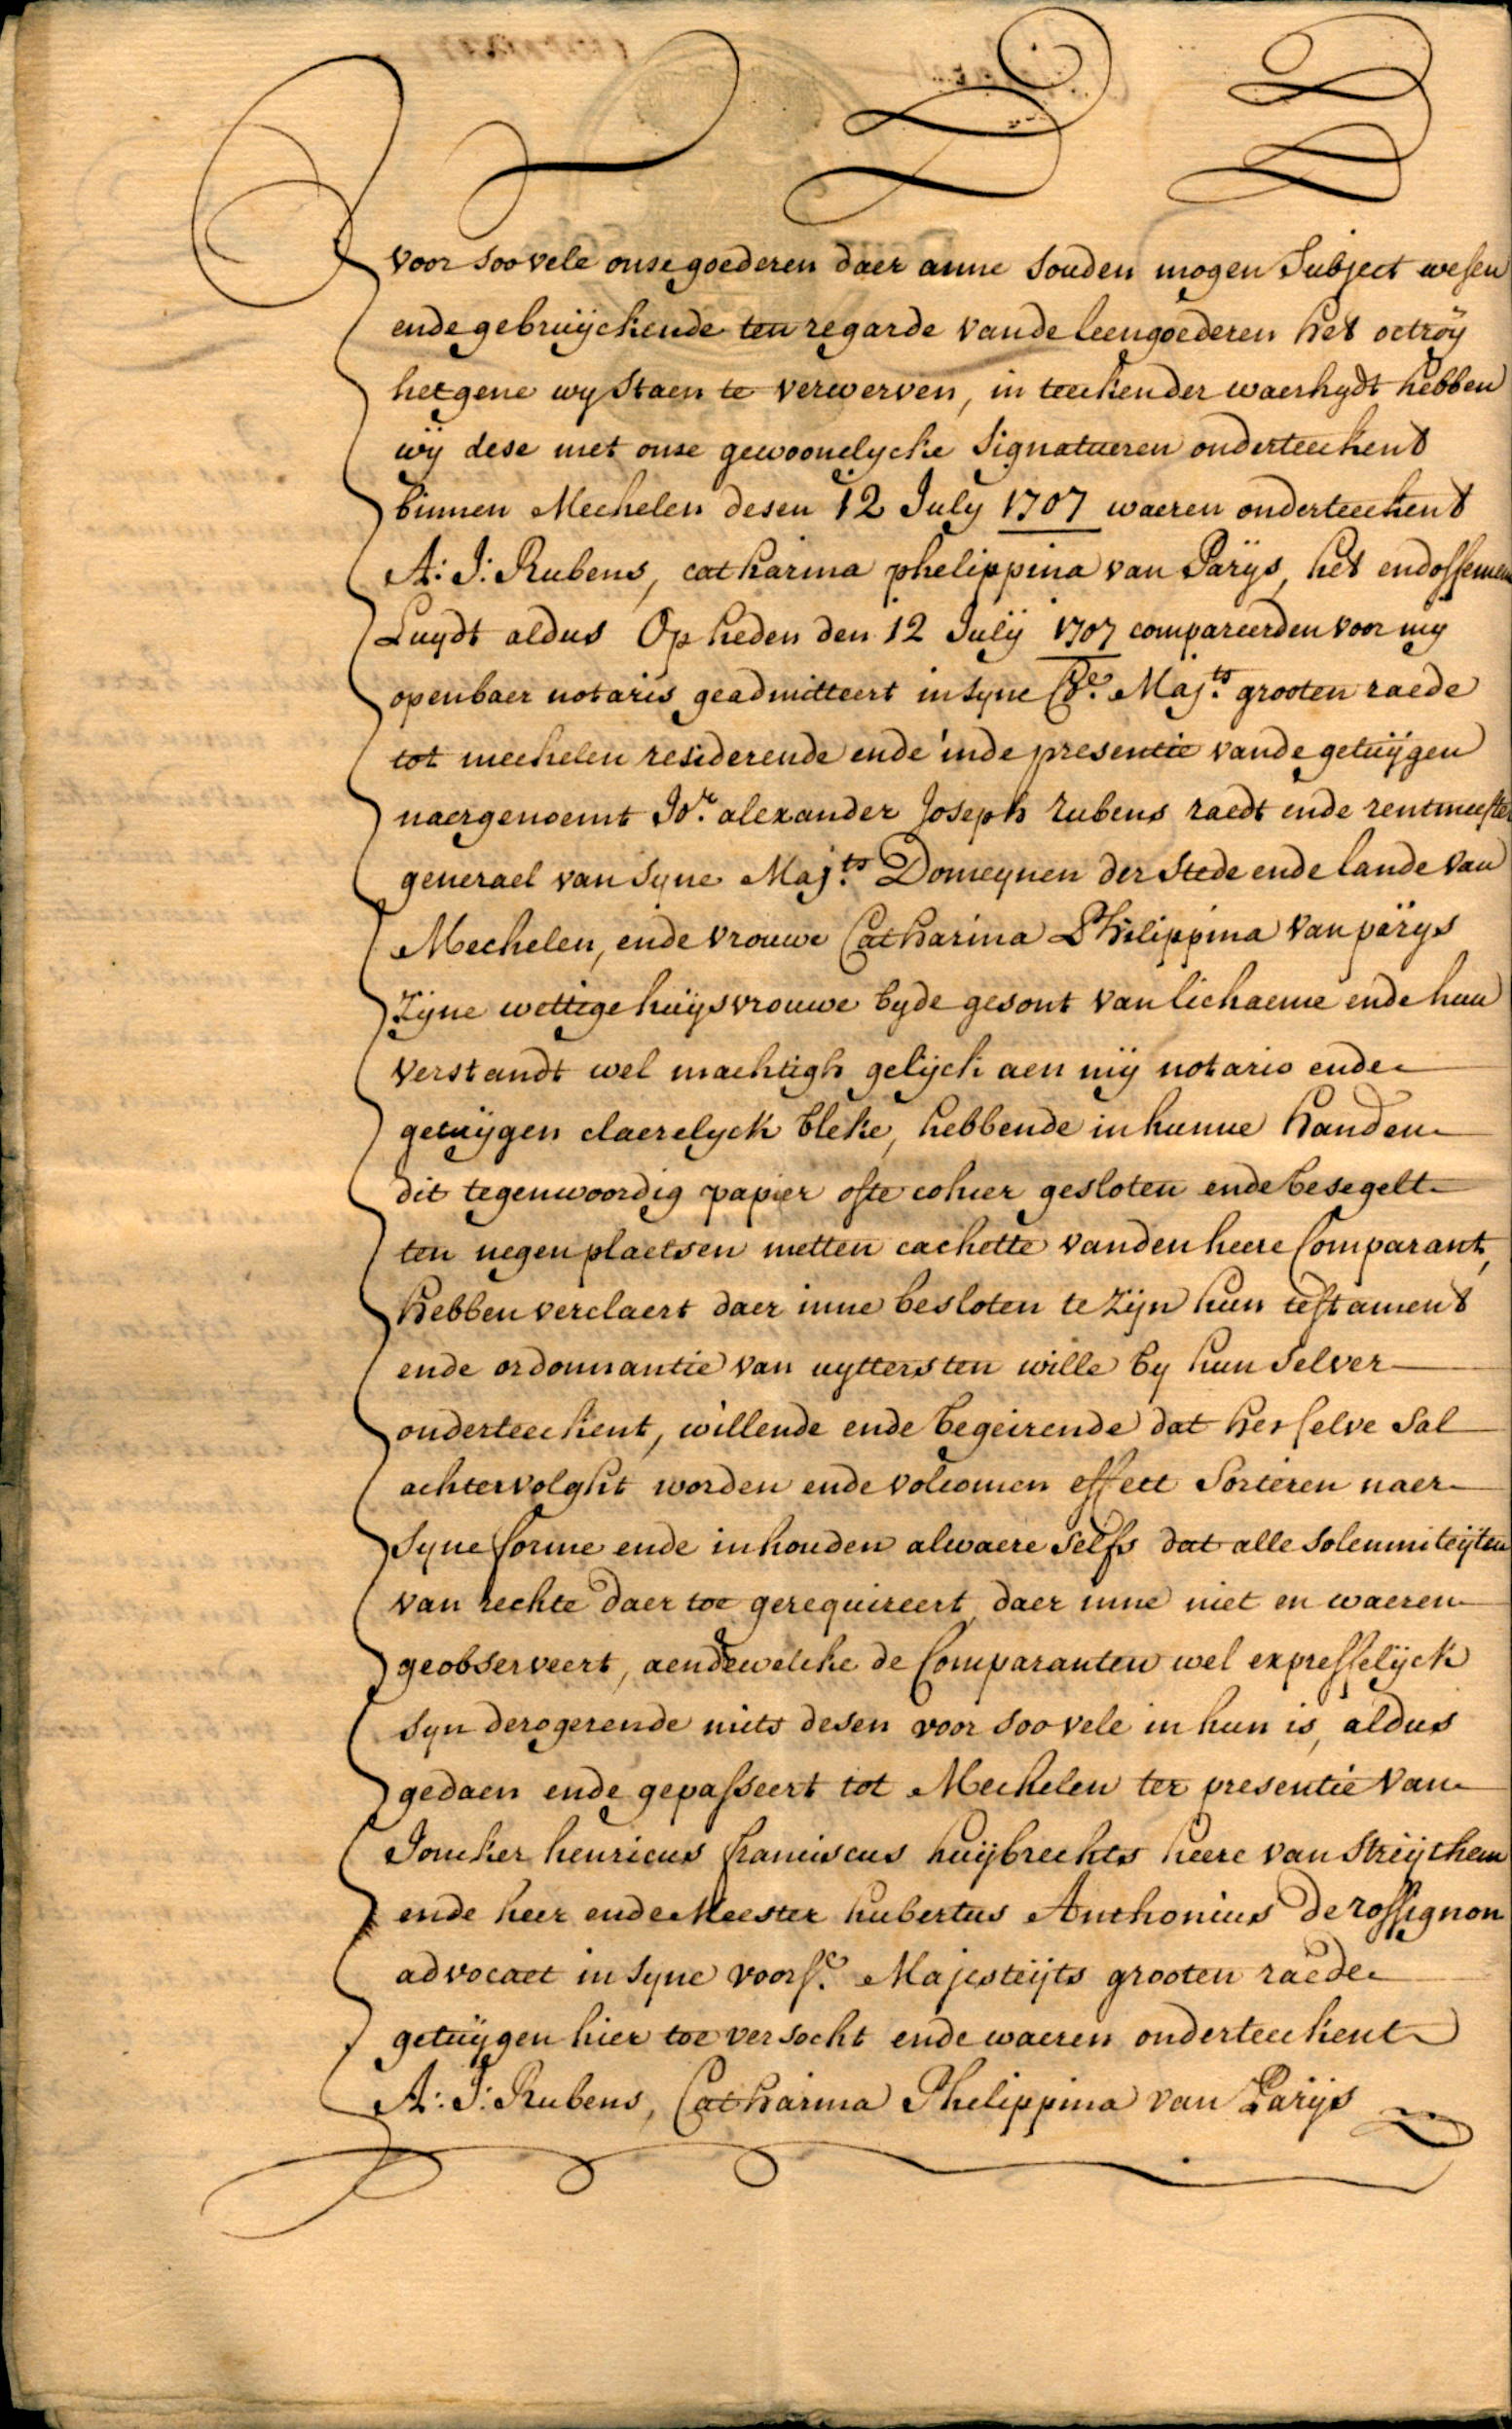 voor soo vele onse goederen daer anne souden mogen Subject wesen
ende gebruijckende ten regarde vande leengoederen het octroij
hetgene wy staen te verwerven, in teeckender waerhydt hebben
wij dese met onse gewoonelycke Signatueren onderteeckent
binnen Mechelen desen 12 July 1707 waeren onderteeckent
A: J: Rubens, catharina phelippina van Parijs, het endossement
Luydt aldus Op heden den 12 Julij 1707 compareerden voor mij
openbaer notaris geadmitteert in syne Co.e Maj.ts grooten raede
tot mechelen resederende ende inde presentie vande getuijgen
naergenoemt Jo.r alexander Joseph rubens raedt ende rentmeester
generael van syne Maj.ts Domeynen der Stede ende lande van
Mechelen, ende vrouwe Catharina Philippina van parijs
Zijne wettige huijsvrouwe byde gesont van lichaeme ende hun
verstandt wel machtigh gelijck aen mij notario ende
getuijgen claerelyck bleke, hebbende in hunne handen
dit tegenwoordig papier ofte cohier gesloten ende besegelt
ten negen plaetsen metten cachette vanden heere Comparant,
hebben verclaert daer inne besloten te zijn hun testament
ende ordonnantie van uyttersten wille by hun selver
onderteeckent, willende ende begeirende dat het selve sal
achtervolght worden ende volcomen effect sorteren naer
syne forme ende inhouden alwaere selfs dat alle solemniteijten
van rechte daer toe gerequireert daer inne niet en waeren
geobserveert, aendewelcke de Comparanten wel expresselijck
syn derogerende mits desen voor soo vele in hun is, aldus
gedaen ende gepasseert tot Mechelen ter presentie van
Joncker henricus franciscus huijbrechts heere van Streijthem
ende heer ende Meester hubertus Anthonius De rossignon
advocaet in syne voors.e Majesteijts grooten raede
getuijgen hier toe versocht ende waeren onderteeckent
A: J: Rubens, Catharina Philippina van Parijs